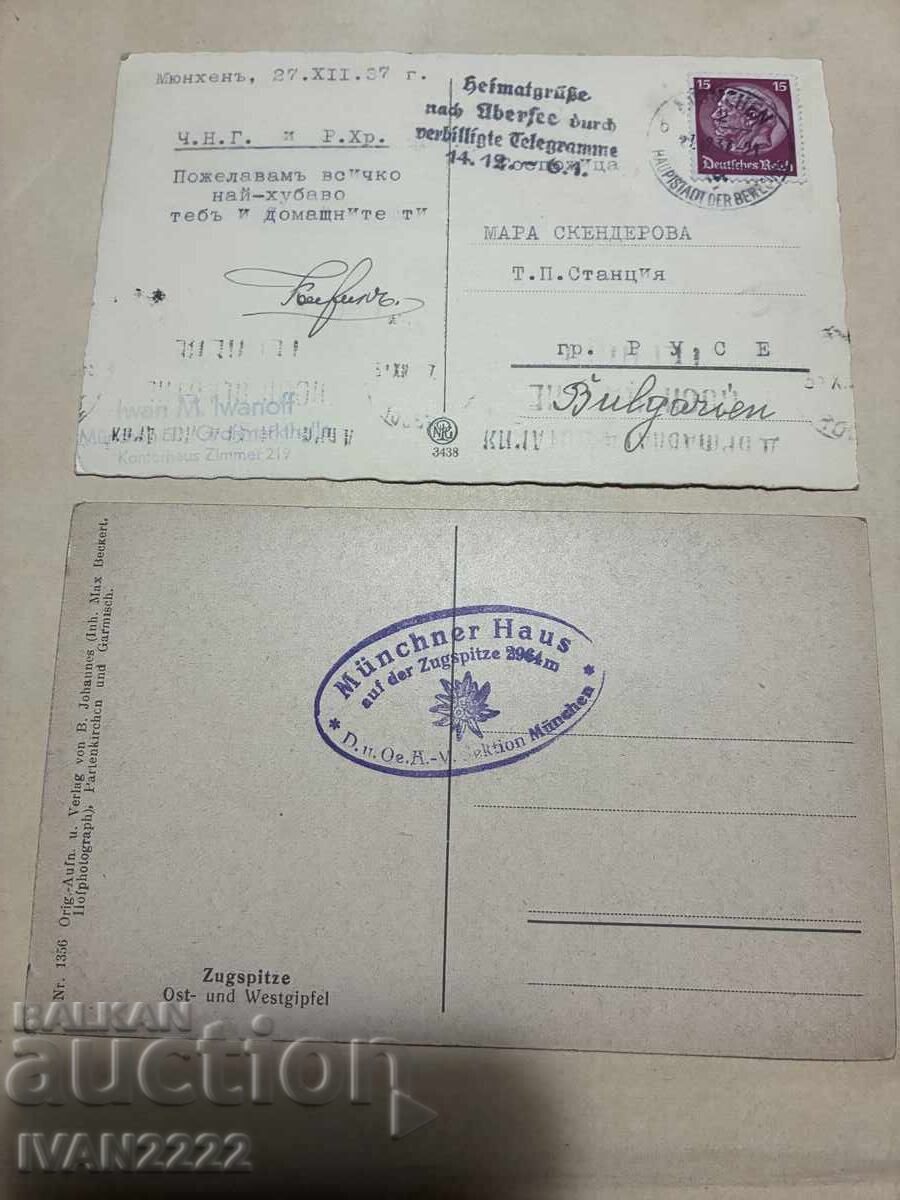 Мюнхенъ, 27.XII.37 г.
Ч.Н.Г. и Р.Хр.
Пожелавамъ всичко
най-хубаво
тебъ и домашните ти
Iwan M. Iwanoff
Großmarkthalle
Kontorhaus Zimmer 219
3438
Heimatgrüße
nach Übersee durch
verbilligte Telegramme
14.12. - 6.1.
15 15
Deutsches Reich
MÜNCHEN
HAUPTSTADT DER BEWEGUNG
МАРА СКЕНДЕРОВА
Т.П.Станция
гр. РУСЕ
Bulgarien
Nr. 1356 Orig.-Aufn. u. Verlag von B. Johannes (Inh. Max Beckert,
Hofphotograph), Partenkirchen und Garmisch.
Münchner Haus
auf der Zugspitze 2964m
* D.u.Oe.A.-V. Sektion München *
Zugspitze
Ost- und Westgipfel
BALKAN
auction
IVAN2222